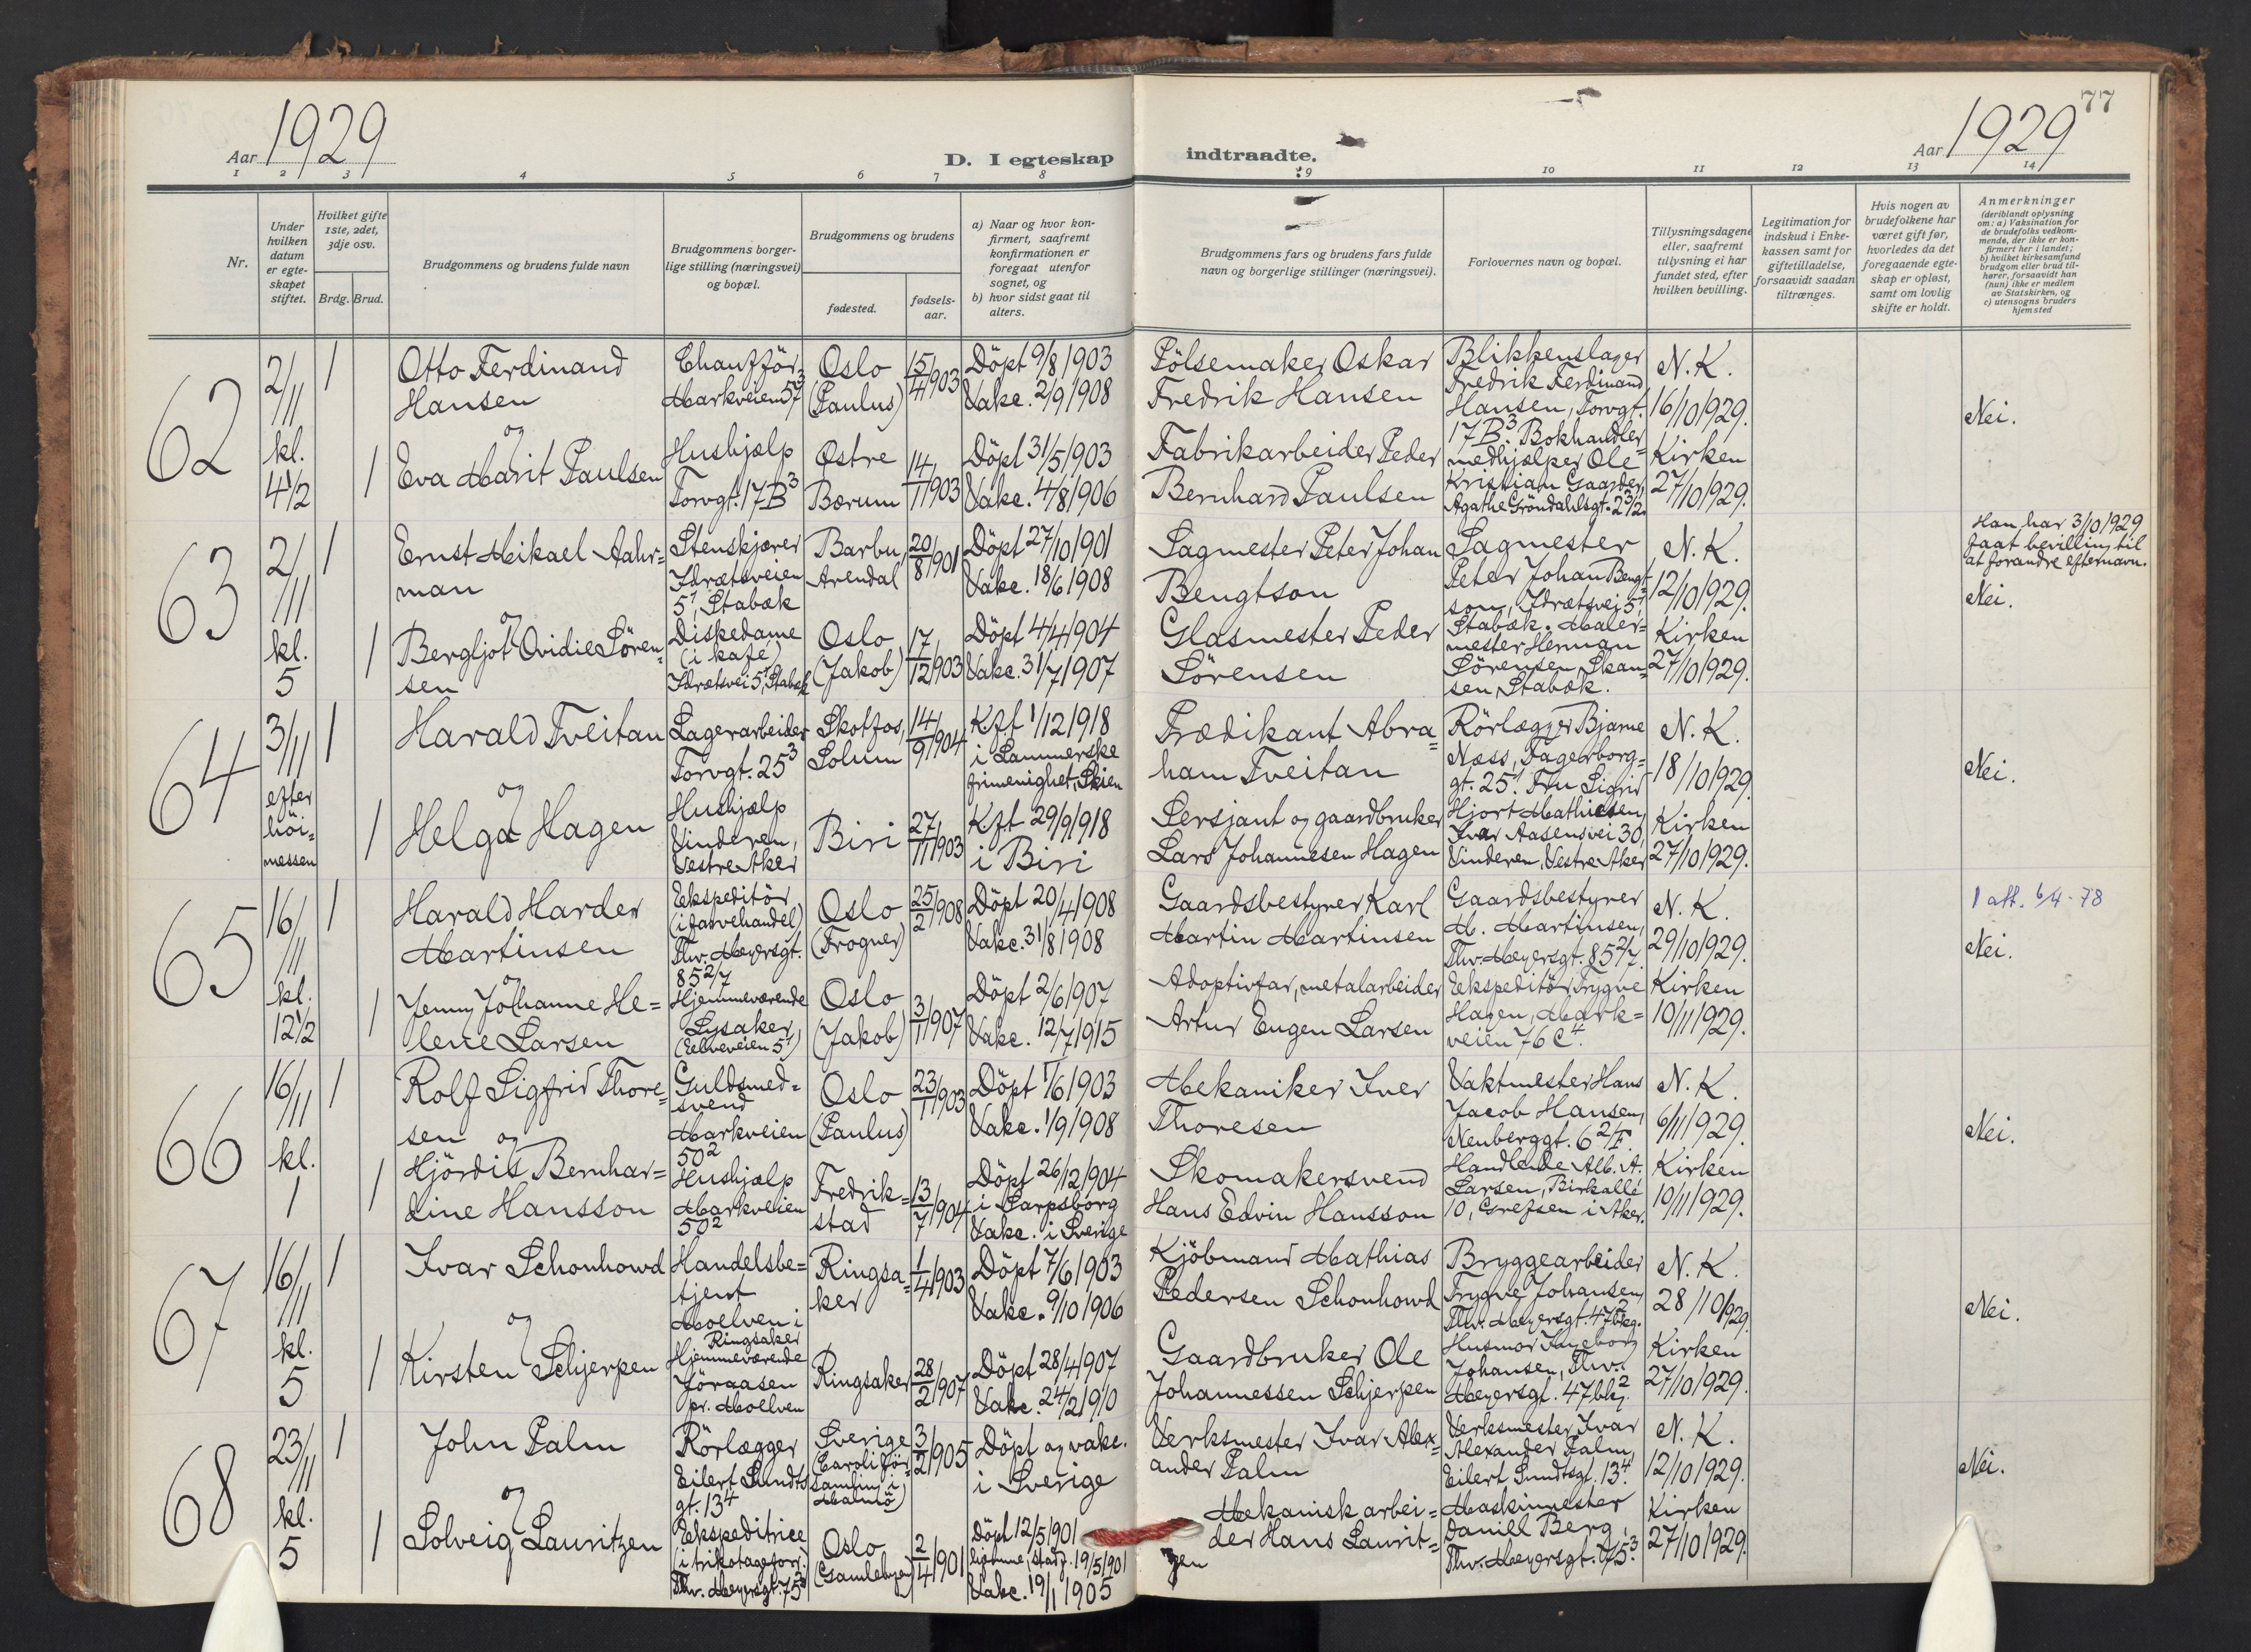 Aar 1929
D. I egteskap
indtraadte.
Aar 1929
77
1 2 3 4 5 6 7 8 9 10 11 12 13 14
Nr.
Under
hvilken
datum
er egte-
skapet
stiftet.
Hvilket gifte
1ste, 2det,
3dje osv.
Brdg. Brud.
Brudgommens og brudens fulde navn
Brudgommens borger-
lige stilling (næringsvei)
og bopæl.
Brudgommens og brudens
fødested.
fødsels-
aar.
a) Naar og hvor kon-
firmert, saafremt
konfirmationen er
foregaat utenfor
sognet, og
b) hvor sidst gaat til
alters.
Brudgommens fars og brudens fars fulde
navn og borgerlige stillinger (næringsvei).
Forlovernes navn og bopæl.
Tillysningsdagene
eller, saafremt
tillysning ei har
fundet sted, efter
hvilken bevilling.
Legitimation for
indskud i Enke-
kassen samt for
giftetilladelse,
forsaavidt saadan
tiltrænges.
Hvis nogen av
brudefolkene har
været gift før,
hvorledes da det
foregaaende egte-
skap er opløst,
samt om lovlig
skifte er holdt.
Anmerkninger
(deriblandt oplysning
om: a) Vaksination for
de brudefolks vedkom-
mende, der ikke er kon-
firmert her i landet;
b) hvilket kirkesamfund
brudgom eller brud til-
hører, forsaavidt han
(hun) ikke er medlem
av Statskirken, og
c) utensogns bruders
hjemsted
62
2/11
kl.
4 1/2
1
Otto Ferdinand
Hansen
og
Chaufför
Markveien 57³
Oslo
(Paulus)
15/4 1903
Döpt 9/8 1903
Vakc. 2/9 1908
Pölsemaker Oskar
Fredrik Hansen
Blikkenslager
Fredrik Ferdinand
Hansen, Torvgt.
17 B³. Bokhandler=
medhjælper Ole
Kristian Gaarder,
Agathe Gröndahlsgt. 2 3/2.
N. K.
16/10 1929.
Kirken
27/10 1929.
Nei.
1
Eva Marit Paulsen
Hushjælp
Torvgt. 17 B³
Østre
Bærum
14/11 1903
Döpt 31/5 1903
Vakc. 4/8 1906
Fabrikarbeider Peder
Bernhard Paulsen
63
2/11
kl.
5
1
Ernst Mikael Aahr=
man
og
Stenskjærer
Idrætsveien
5¹, Stabæk
Barbu,
Arendal
20/8 1901
Döpt 27/10 1901
Vakc. 18/6 1908
Sagmester Peter Johan
Bengtson
Sagmester
Peter Johan Bengt-
son, Idrætsvei 5¹,
Stabæk. Maler=
mester Herman
Sörensen, Skan=
sen, Stabæk.
N. K.
12/10 1929.
Kirken
27/10 1929.
Han har 3/10 1929
faat bevilling til
at forandre efternavn.
Nei.
1
Bergljot Ovidie Sören=
sen
Diskedame
(i kafé)
Idrætsvei 5¹, Stabæk
Oslo
(Jakob)
17/12 1903
Döpt 4/4 1904
Vakc. 31/7 1907
Glasmester Peder
Sörensen
64
3/11
efter
höi=
messen
1
Harald Tveitan
og
Lagerarbeider
Torvgt. 25³
Skotfos,
Solum
14/9 1904
Kft 1/12 1918
i Lammerske
frimenighet, Skien
Prædikant Abra=
ham Tveitan
Rörlægger Bjarne
Næss, Fagerborg=
gt. 25¹. Fru Sigrid
Hjort Mathiesen,
Ivar Aasensvei 30,
Vinderen, Vestre Aker
N. K.
18/10 1929.
Kirken
27/10 1929.
Nei.
1
Helga Hagen
Hushjælp
Vinderen,
Vestre Aker
Biri
27/11 1903
Kft 29/9 1918
i Biri
Sersjant og gaardbruker
Lars Johannesen Hagen
65
16/11
kl.
12 1/2
1
Harald Harder
Martinsen
og
Ekspeditör
(i farvehandel)
Thv. Meyersgt.
85 2/7
Oslo
(Frogner)
25/2 1908
Döpt 20/4 1908
Vakc. 31/8 1908
Gaardsbestyrer Karl
Martin Martinsen
Gaardsbestyrer
M. Martinsen,
Thv. Meyersgt. 85 2/7.
Ekspeditör Trygve
Hagen, Mark=
veien 76 C⁴.
N. K.
29/10 1929.
Kirken
10/11 1929.
1 att. 6/4-78
Nei.
1
Jenny Johanne He=
lene Larsen
Hjemmeværende
Lysaker
(Elveveien 5¹)
Oslo
(Jakob)
3/1 1907
Döpt 2/6 1907
Vakc. 12/7 1915
Adoptivfar, metalarbeider
Artur Eugen Larsen
66
16/11
kl.
1
1
Rolf Sigfrid Thore=
sen
og
Guldsmed=
svend
Markveien
50²
Oslo
(Paulus)
23/1 1903
Döpt 1/6 1903
Vakc. 1/9 1908
Mekaniker Iver
Thoresen
Vaktmester Hans
Jacob Hansen,
Neuberggt. 6 2/F.
Handlende Alb. A.
Larsen, Birkallé
10, Grefsen i Aker.
N. K.
6/11 1929.
Kirken
10/11 1929.
Nei.
1
Hjördis Bernhar=
dine Hansson
Hushjælp
Markveien
50²
Fredrik=
stad
13/7 1904
Döpt 26/12 1904
i Sarpsborg
Vakc. i Sverige
Skomakersvend
Hans Edvin Hansson
67
16/11
kl.
5
1
Ivar Schonhowd
og
Handelsbe=
tjent
Moelven i
Ringsaker
Ringsa=
ker
1/4 1903
Döpt 7/6 1903
Vakc. 9/10 1906
Kjöbmand Mathias
Pedersen Schonhowd
Bryggearbeider
Trygve Johansen,
Thv. Meyersgt. 47² bkg.
Husmor Ingeborg
Johansen, Thv.
Meyersgt. 47 bkg².
N. K.
28/10 1929.
Kirken
27/10 1929.
Nei.
1
Kirsten Schjerpen
Hjemmeværende
Jöraasen
pr. Moelven
Ringsaker
28/2 1907
Döpt 28/4 1907
Vakc. 24/2 1910
Gaardbruker Ole
Johannessen Schjerpen
68
23/11
kl.
5
1
John Palm
og
Rörlægger
Eilert Sundts
gt. 13⁴
Sverige
(Caroli för=
samling i
Malmö)
3/2 1905
Döpt og vakc.
i Sverige
Verksmester Ivar Alex=
ander Palm
Verksmester Ivar
Alexander Palm,
Eilert Sundtsgt. 13⁴.
Maskinmester
Daniel Berg,
Thv. Meyersgt. 75³.
N. K.
12/10 1929.
Kirken
27/10 1929.
Nei.
1
Solveig Lauritzen
Ekspeditrice
(i trikotageforr.)
Thv. Meyersgt. 75³
Oslo
(Gamlebyen)
2/4 1901
Döpt 12/5 1901
hjemme, stadf. 19/5 1901
Vakc. 19/1 1905
Mekanisk arbei=
der Hans Laurit=
zen